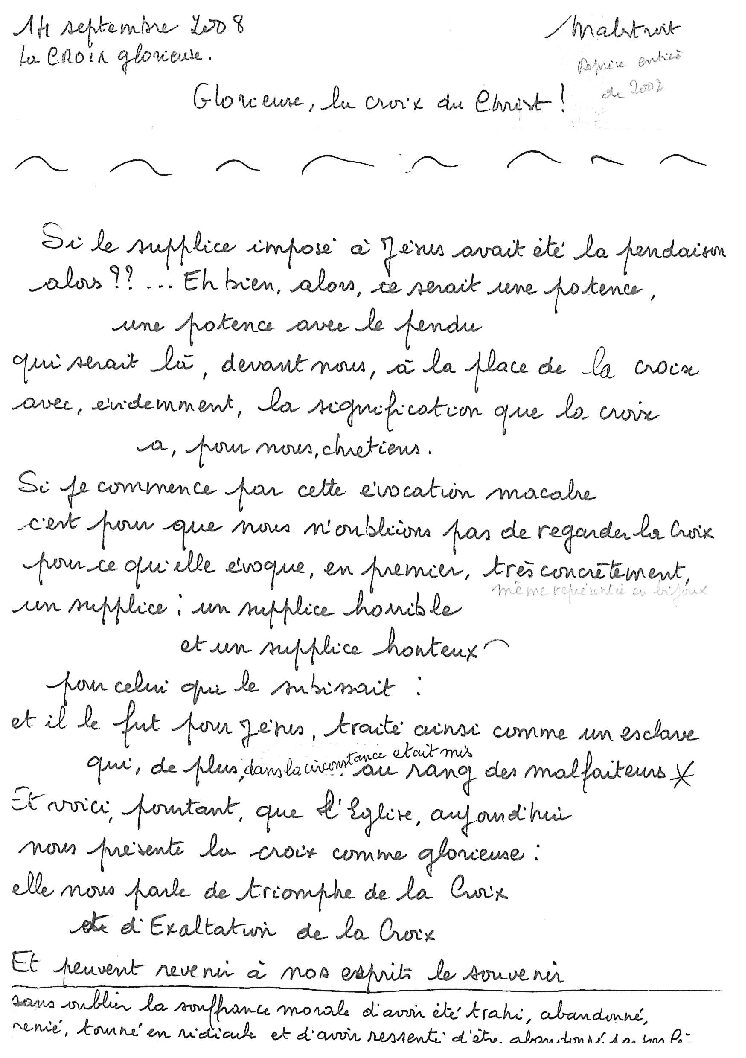 14 septembre 2008
La CROIX glorieuse.
Malestroit
Reprise entière
de 2002
Glorieuse, la croix du Christ !
Si le supplice imposé à Jésus avait été la pendaison
alors ?? ... Eh bien, alors, ce serait une potence,
une potence avec le pendu
qui serait là, devant nous, à la place de la croix
avec, évidemment, la signification que la croix
a, pour nous, chrétiens.
Si je commence par cette évocation macabre
c'est pour que nous n'oubliions pas de regarder la Croix
pour ce qu'elle évoque, en premier, très concrètement,
même représentée en bijoux
un supplice ; un supplice horrible
et un supplice honteux
pour celui qui le subissait :
et il le fut pour Jésus, traité ainsi comme un esclave
qui, de plus, dans la circonstance était mis au rang des malfaiteurs *
Et voici, pourtant, que l'Eglise, aujourd'hui
nous présente la croix comme glorieuse :
elle nous parle de triomphe de la Croix
et d'Exaltation de la Croix
Et peuvent revenir à nos esprits le souvenir
sans oublier la souffrance morale d'avoir été trahi, abandonné,
renié, tourné en ridicule et d'avoir ressenti d'être abandonné